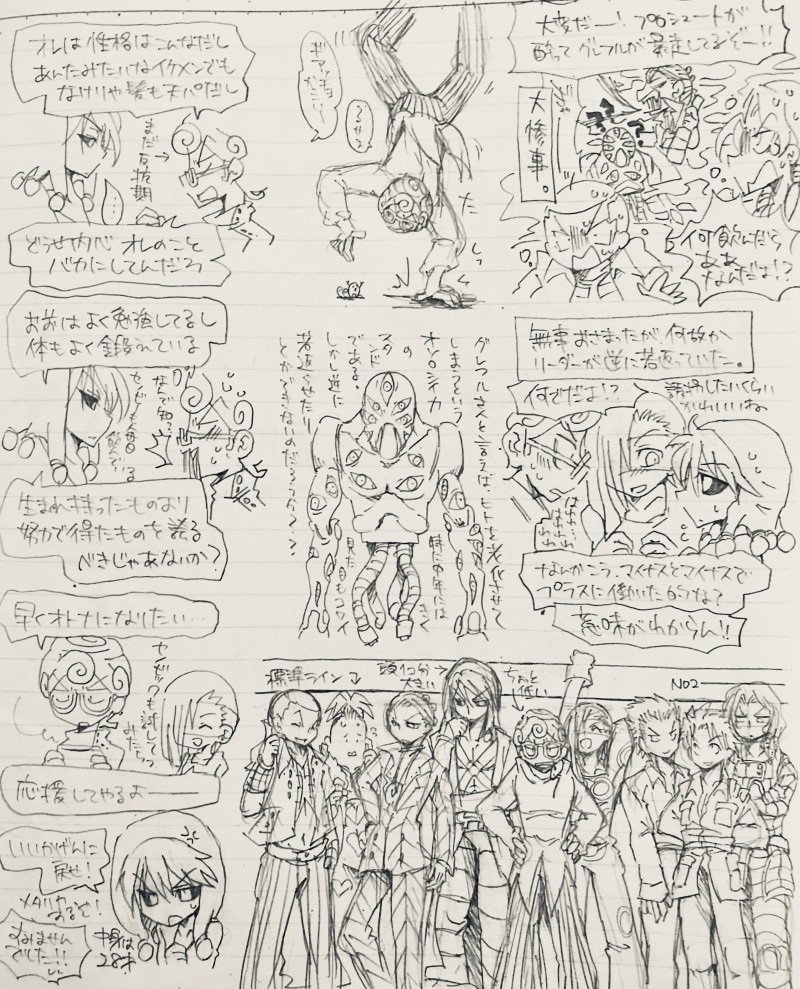 大変だー!プロシュートが
酔ってグレフルが暴走してるぞー!!
大惨事。
何飲んだら
ああ
なんだよ!?
ギアッチョ
だっこ!!
うるせえ
た
しっ
オレは性格はこんなだし
あんたみたいなイケメンでも
なけりゃ髪も天パだし
まだ反抗期
どうせ内心オレのこと
バカにしてんだろ
お前はよく勉強してるし
体もよく鍛えている
なんで知っ
生まれ持ったものより
努力で得たものを誇る
べきじゃあないか?
グレフルさんと言えば、ヒトを老化させて
しまうという
オソロシイカ
の
スタンド
である。
しかし逆に
若返らせたり
とかできないのだろうか…?
見た目もコワイ
無事おさまったが、何故か
リーダーが逆に若返っていた。
何でだよ!?
誘拐したいくらい
かわいいね
はわわ…
なんかこう、マイナスとマイナスで
プラスに働いた的な?
意味がわからん!!
早くオトナになりたい…
応援してやるよ――
いいかげんに
戻せ!
メタリャ
すみません
でした!!
中身は
28才
標準ライン
頭1コ分
大きい
ちょっと
低い
NO2